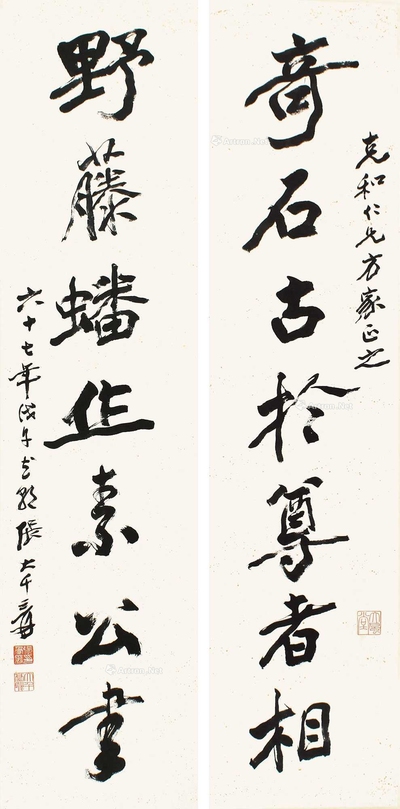 克和仁兄方家正之
奇石古於尊者相
野藤蟠作素公書
六十七年戊午
張大千爰